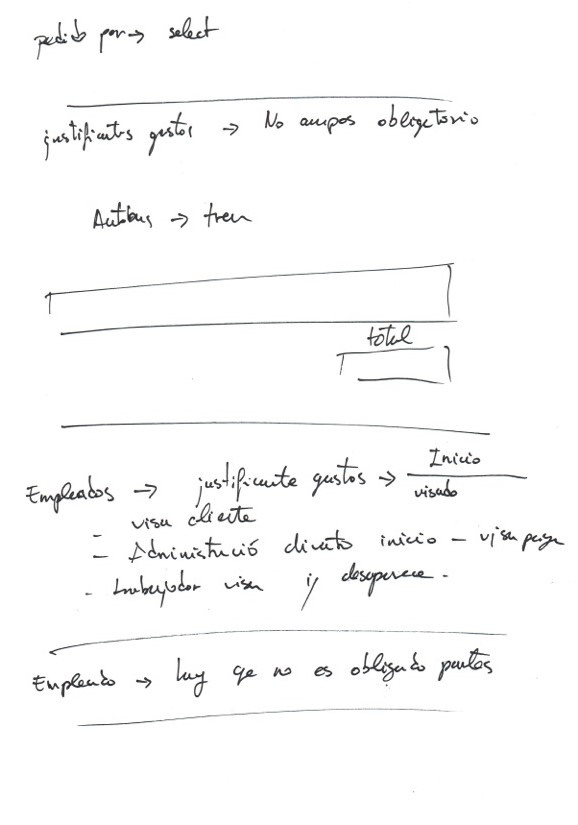 pedido por → select
justificantes gastos → No campos obligatorio
Autobus → tren
total
Empleados → justificante gastos → Inicio
visado
- visa cliente
- Administració directo inicio - visa paga
- trabajador visa y desaparece.
Empleado → hay qe no es obligado partes